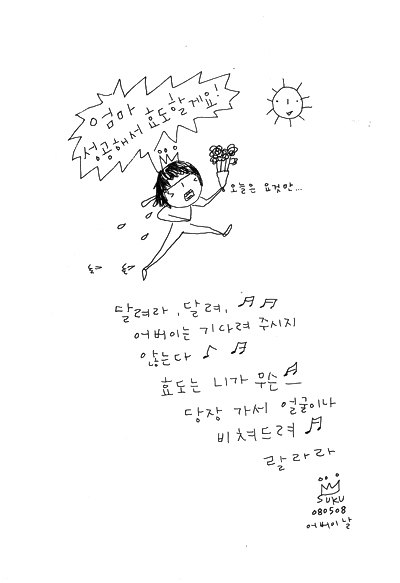 엄마
성공해서 효도할게요!
오늘은 요것만...
달려라, 달려,
어버이는 기다려 주시지
않는다
효도는 니가 무슨
당장 가서 얼굴이나
비쳐드려
랄라라
SUKU
080508
어버이날